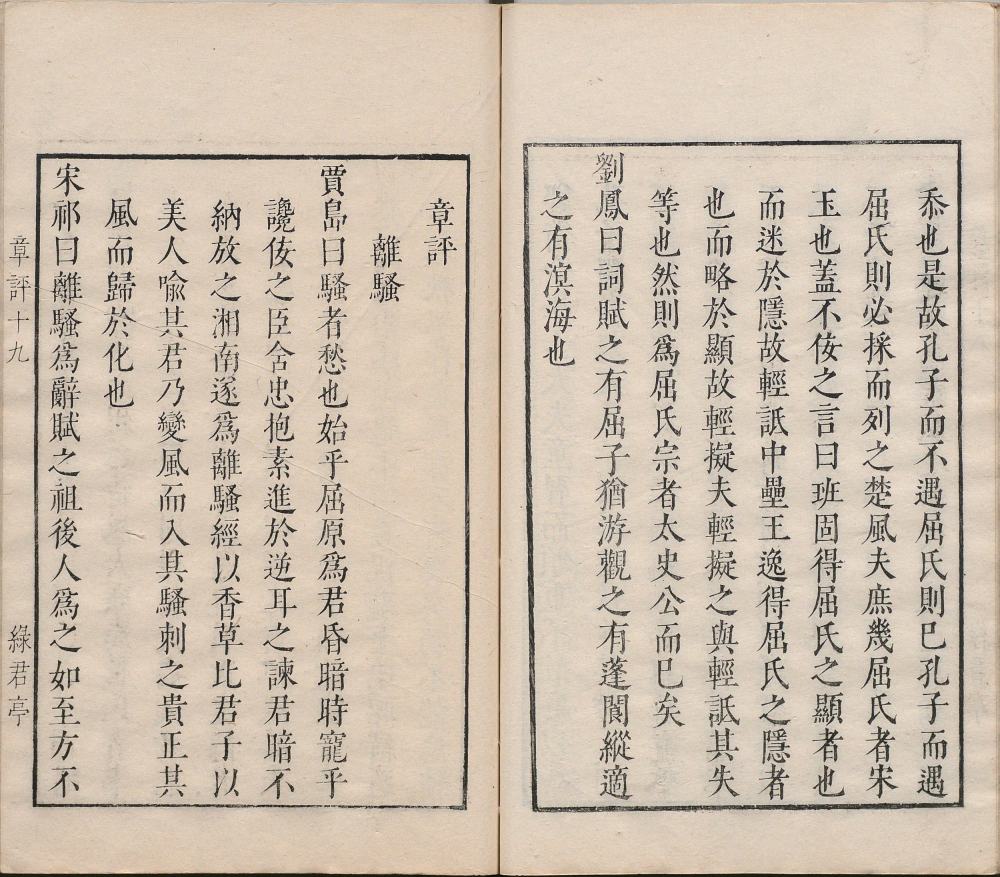 忝也是故孔子而不遇屈氏則已孔子而遇
屈氏則必採而列之楚風夫庶幾屈氏者宋
玉也蓋不佞之言曰班固得屈氏之顯者也
而迷於隱故輕詆中壘王逸得屈氏之隱者
也而略於顯故輕擬夫輕擬之與輕詆其失
等也然則爲屈氏宗者太史公而已矣
劉鳳曰詞賦之有屈子猶游觀之有蓬閬縱適
之有溟海也
章評
離騷
賈島曰騷者愁也始乎屈原爲君昏暗時寵乎
讒佞之臣含忠抱素進於逆耳之諫君暗不
納放之湘南遂爲離騷經以香草比君子以
美人喻其君乃變風而入其騷刺之貴正其
風而歸於化也
宋祁曰離騷爲辭賦之祖後人爲之如至方不
章評十九
綠君亭